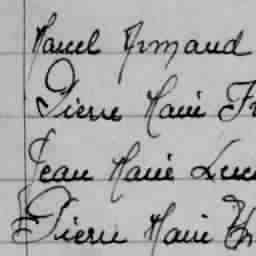 Marcel Armand
Pierre Marie Fr
Jean Marie Luci
Pierre Marie Th